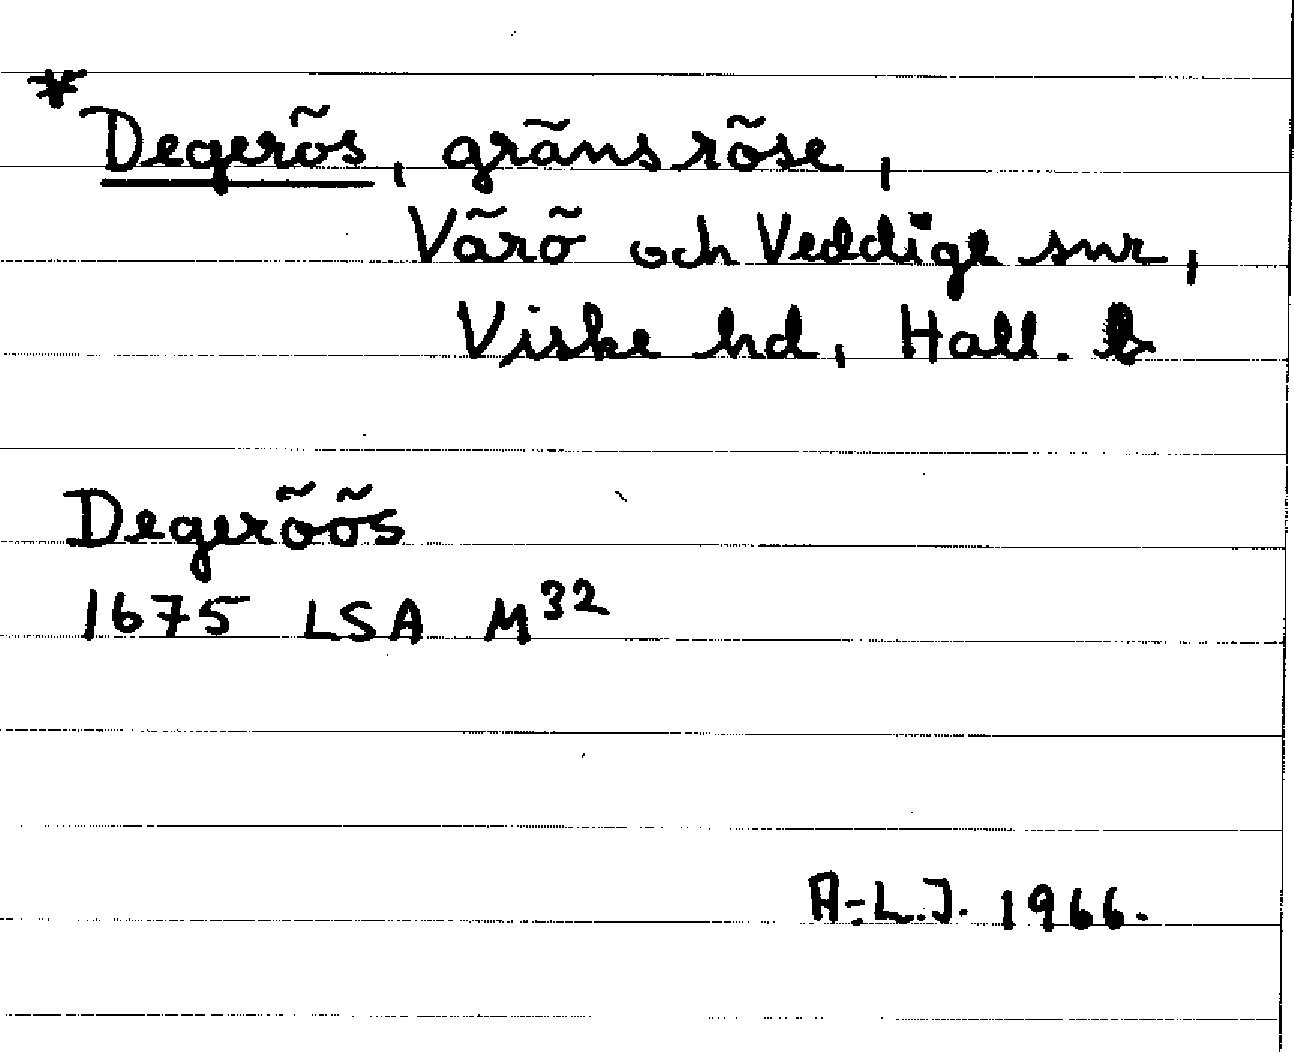 *Degerös, gränsröse,
Värö och Veddige snr,
Viske hd, Hall. l.
Degeröös
1675 LSA M32
A-L.J. 1966.